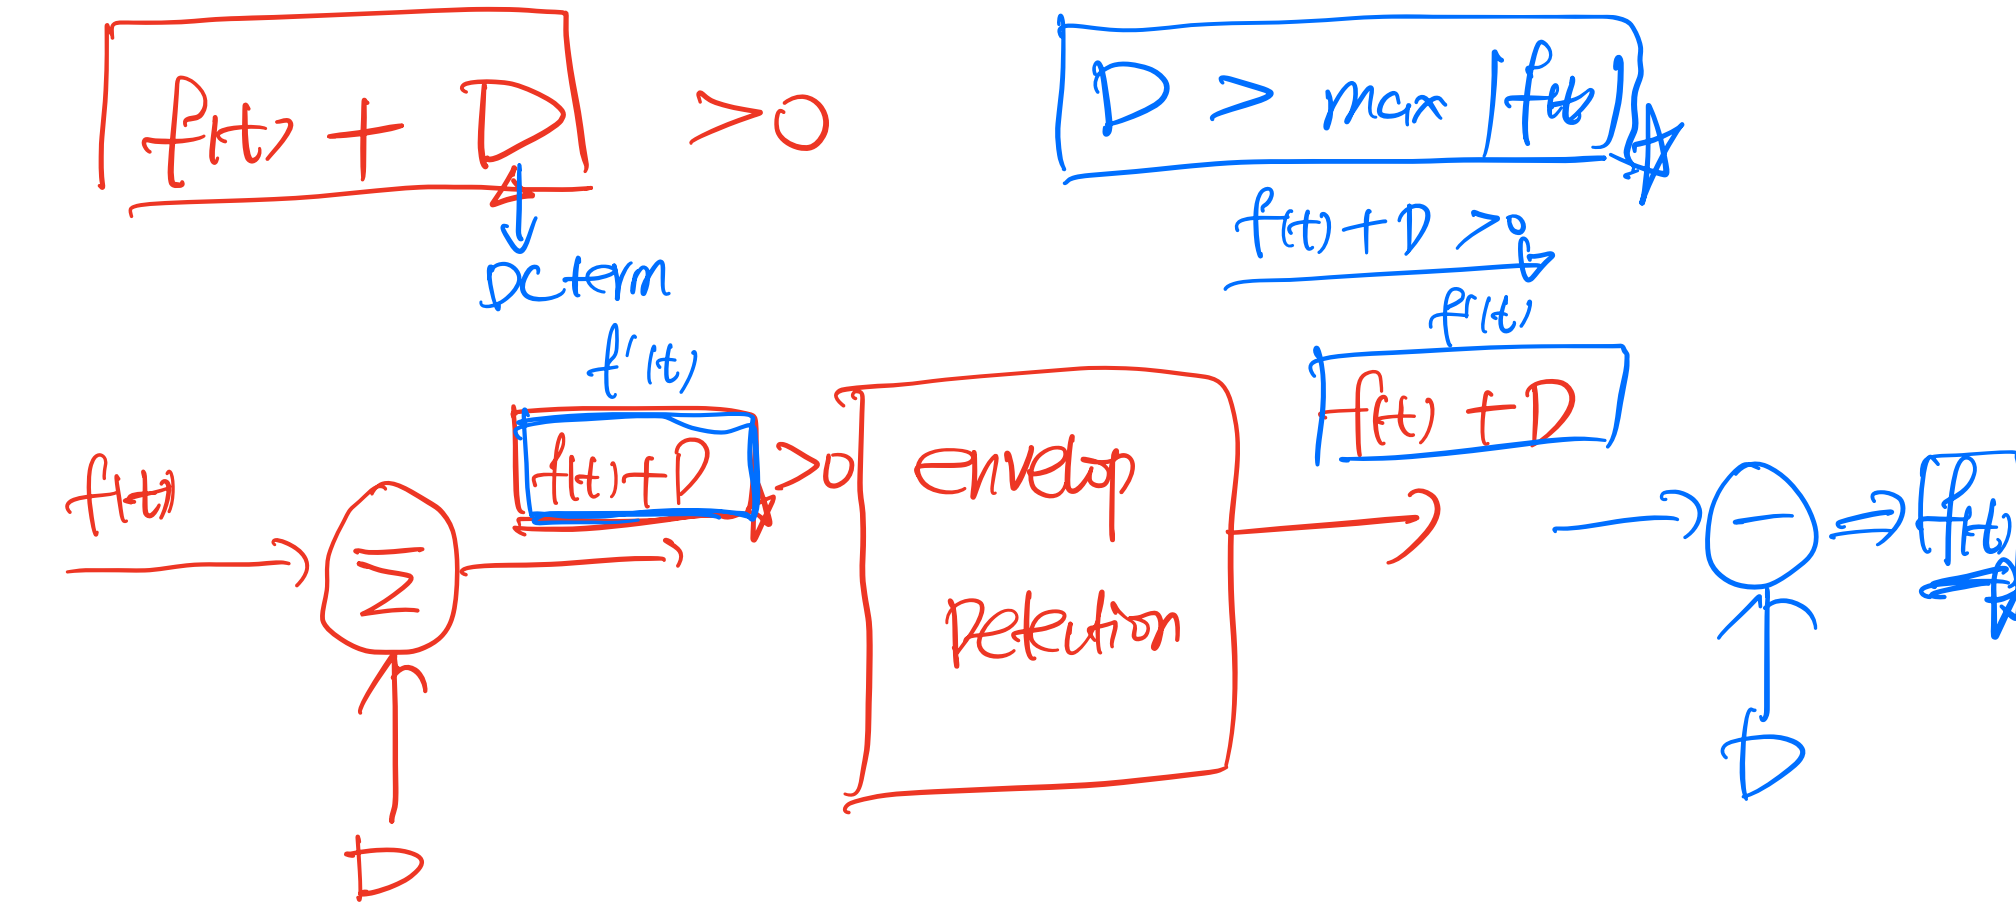 f(t) + D > 0
DC term
D > max |f(t)|
f(t) + D > 0
f'(t)
f'(t)
f(t) + D > 0
f(t) + D
f(t)
Σ
envelop
Detection
−
f(t)
D
D